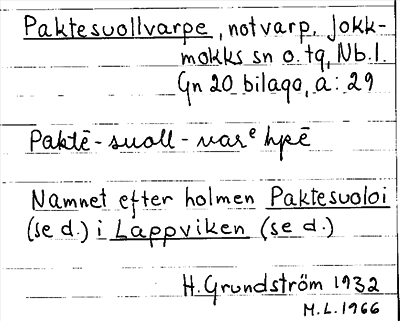 Paktesuollvarpe, notvarp, Jokk-
mokks sn o. tg, Nb. l.
Gn 20 bilaga, a: 29
Paktē-suoll-varᵉhpē
Namnet efter holmen Paktesuoloi
(se d.) i Lappviken (se d.)
H. Grundström 1932
M.L. 1966